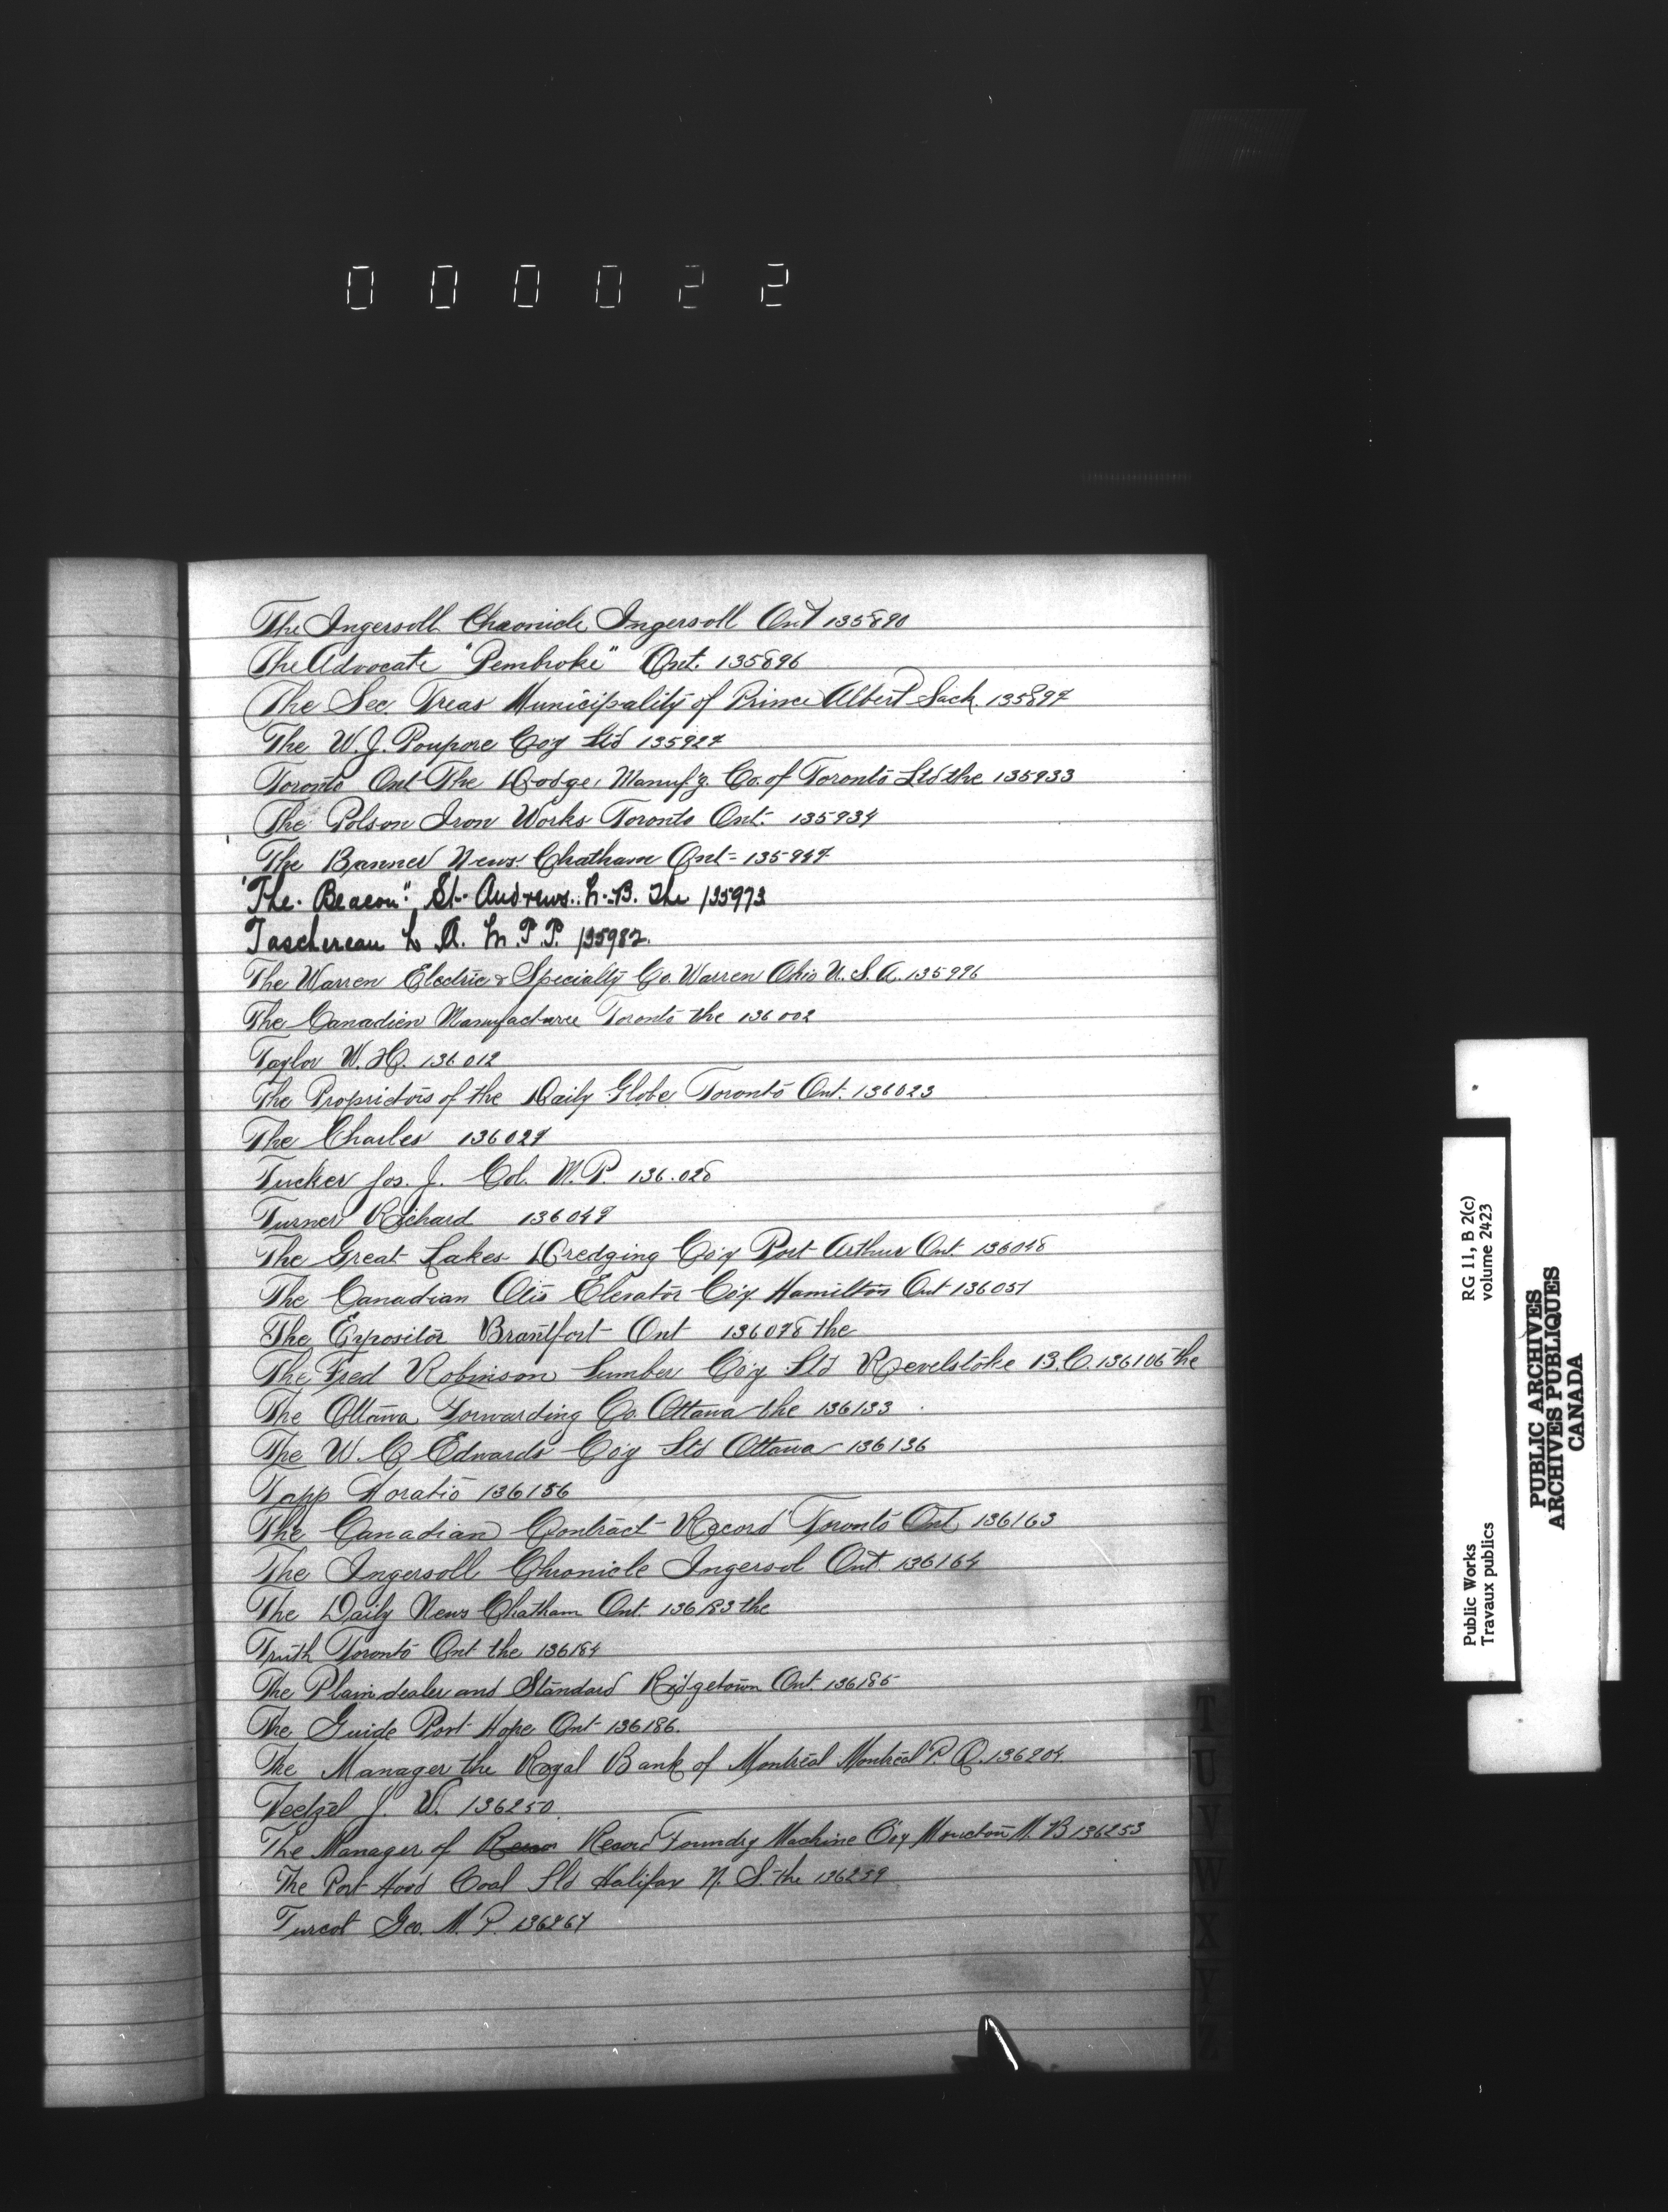 000022
The Ingersoll Chronicle Ingersoll Ont 135890
The Advocate "Pembroke" Ont. 135896
The Sec. Treas Municipality of Prince Albert Sack. 135897
The W. J. Poupore Coy Ltd 135927
Toronto Ont The Dodge Manuf'g. Co. of Toronto Ltd the 135933
The Polson Iron Works Toronto Ont. 135934
The Banner News Chatham Ont- 135947
"The Beacon" St. Andrews. N.B. The 135973
Taschereau L A. M.P.P. 135982.
The Warren Electric & Specialty Co. Warren Ohio U.S.A. 135996
The Canadien Manufacturer Toronto the 136002
Taylor W. H. 136012
The Proprietors of the Daily Globe Toronto Ont. 136023
The Charles 136027
Tucker Jos. J. Col. M.P. 136.028
Turner Richard 136047
The Great Lakes Dredging Co'y Port Arthur Ont 136048
The Canadian Otis Elevator Co'y Hamilton Ont 136057
The Expositor Brantfort Ont 136078 the
The Fred Robinson Lumber Co'y Ltd Revelstoke B.C. 136106 the
The Ottawa Forwarding Co. Ottawa the 136133
The W. C Edwards Coy Ltd Ottawa 136136
Tapp Horatio 136156
The Canadian Contract Record Toronto Ont 136163
The Ingersoll Chronicle Ingersol Ont. 136164
The Daily News Chatham Ont. 136183 the
Truth Toronto Ont the 136184
The Plaindealer and Standard Ridgetown Ont. 136185
The Guide Port Hope Ont 136186.
The Manager the Royal Bank of Montreal Montreal P. Q. 136204
J. W. 136250
The Manager of Record Foundry Machine Coy Moncton N. B 136253
The Port Hood Coal Ltd Halifax N. S. the 136259
Turcot Geo. M. P. 136267
T
U
V
W
X
Y
Z
Public Works
Travaux publics
RG 11, B 2(c)
volume 2423
PUBLIC ARCHIVES
ARCHIVES PUBLIQUES
CANADA